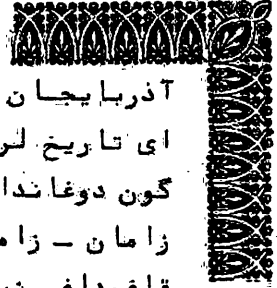 آذربایجان
ای تاریخ لر
گون دوغاندا
زامان - زام